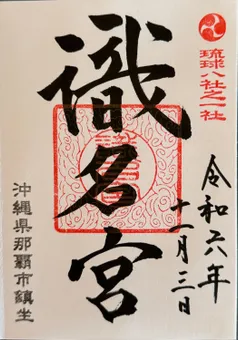 琉球八社之一社
令和六年
十一月三日
識名宮
沖縄県那覇市鎮坐